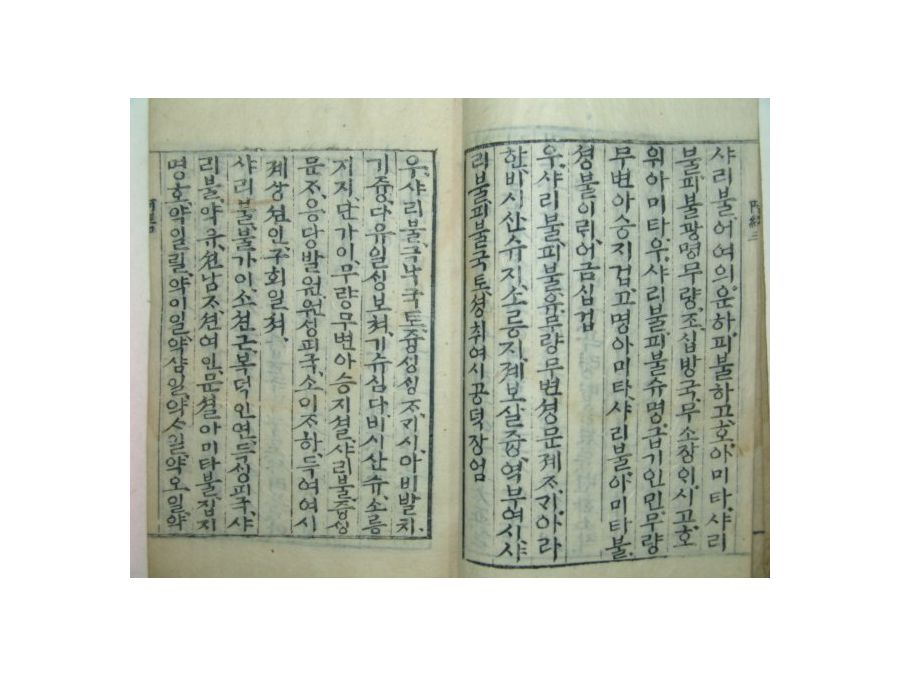 阿經三
샤리불어여의운하피불하고호아미타샤리
불피불광명무량조십방국무소장의시고호
위아미타우샤리불피불슈명급기인민무량
무변아승지겁고명아미타샤리불아미타불
셩불이리어금십겁
우샤리불피불유무량무변셩문졔ᄌᆞᄀᆡ아라
한비시산슈지소릉지졔보살즁역부여시샤
리불피불국토셩취여시공덕장엄
우샤리불극낙국토즁ᄉᆡᆼᄉᆡᆼᄌᆞᄀᆡ시아비발치
기즁다유일ᄉᆡᆼ보쳐기슈심다비시산슈소릉
지지단가이무량무변아승지셜샤리불즁ᄉᆡᆼ
문ᄌᆞ응당발원원ᄉᆡᆼ피국소이ᄌᆞ하득여여시
졔상션인구회일쳐
샤리불불가이소션근복덕인연득ᄉᆡᆼ피국샤
리불약유션남ᄌᆞ션여인문셜아미타불집지
명호약일일약이일약삼일약ᄉᆞ일약오일약